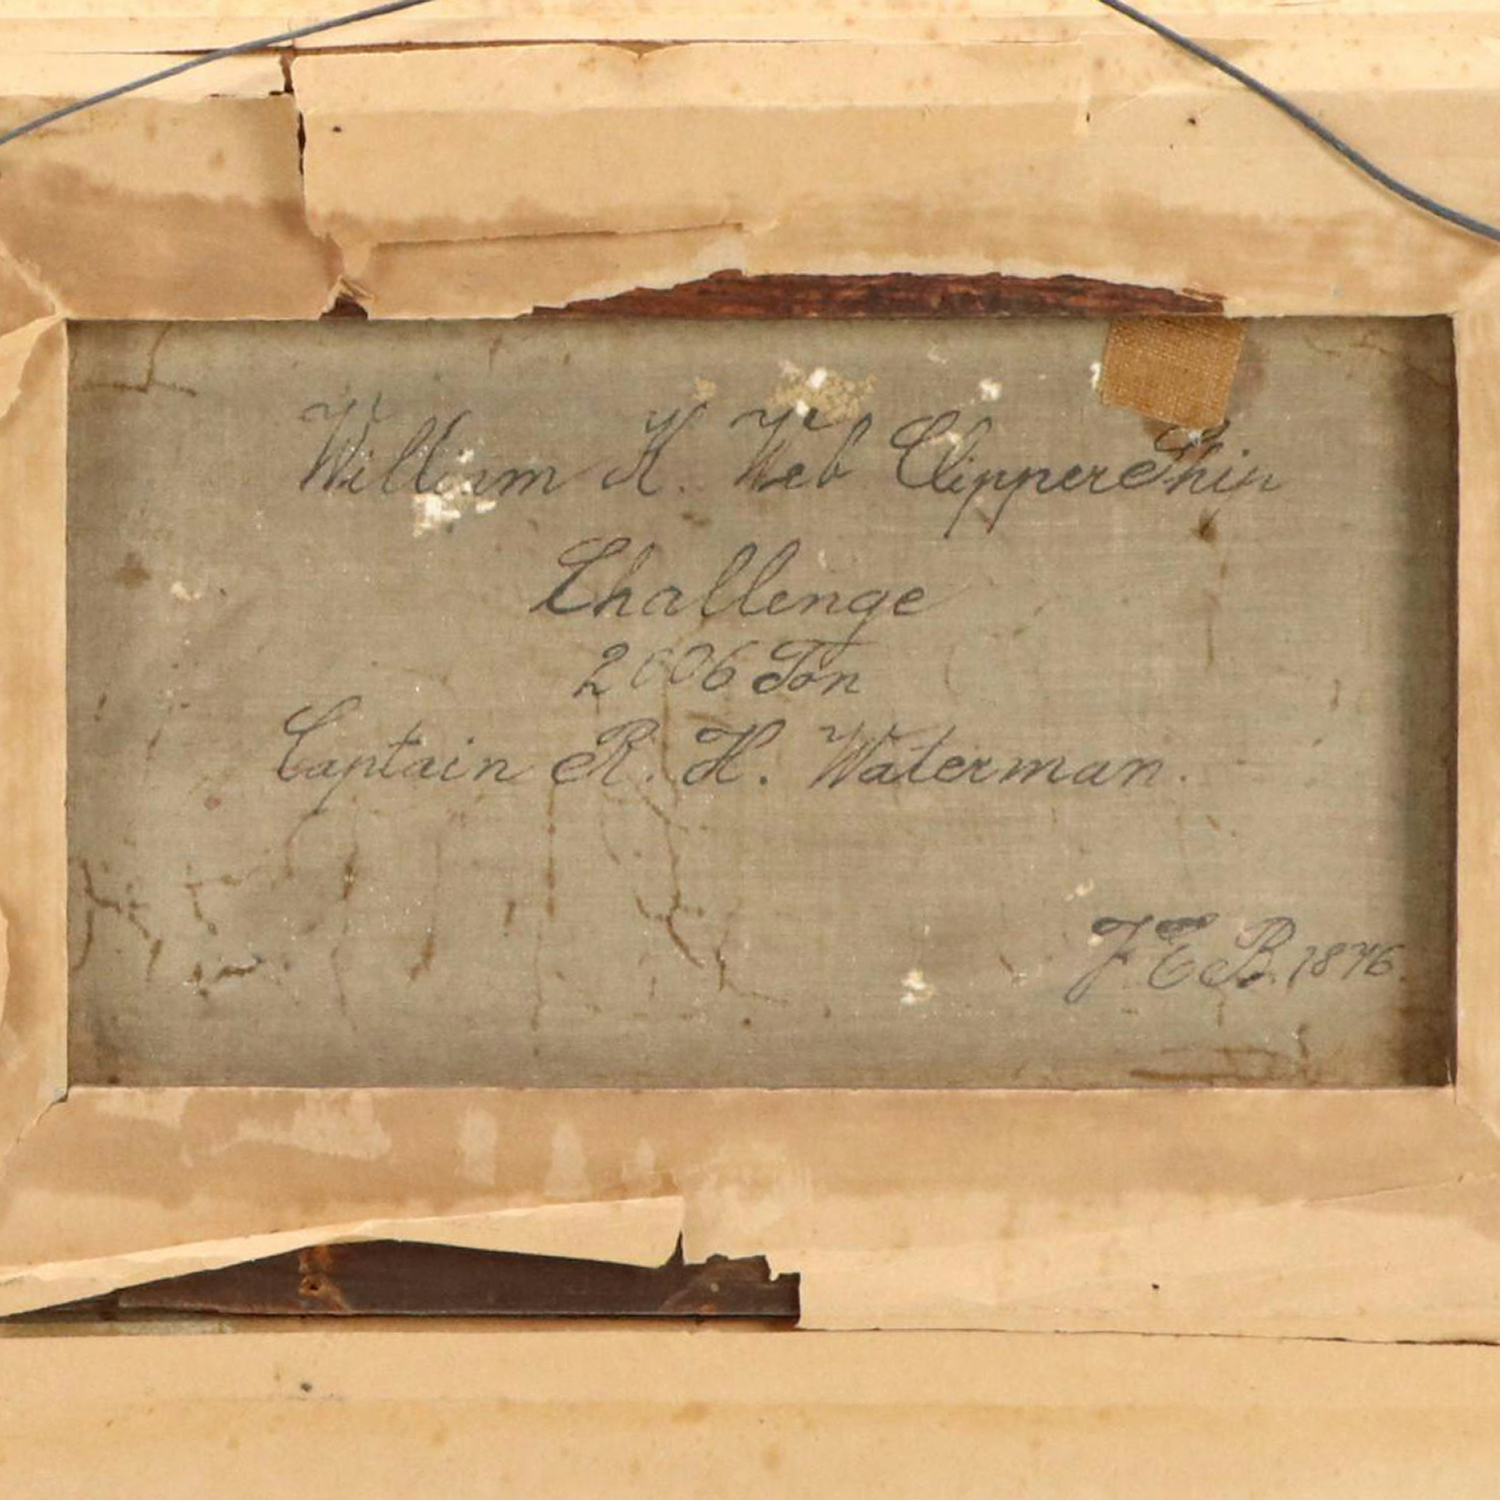 William H. Web Clipper Ship
Challenge
2006 Ton
Captain R. H. Waterman.
J. E. B. 1876